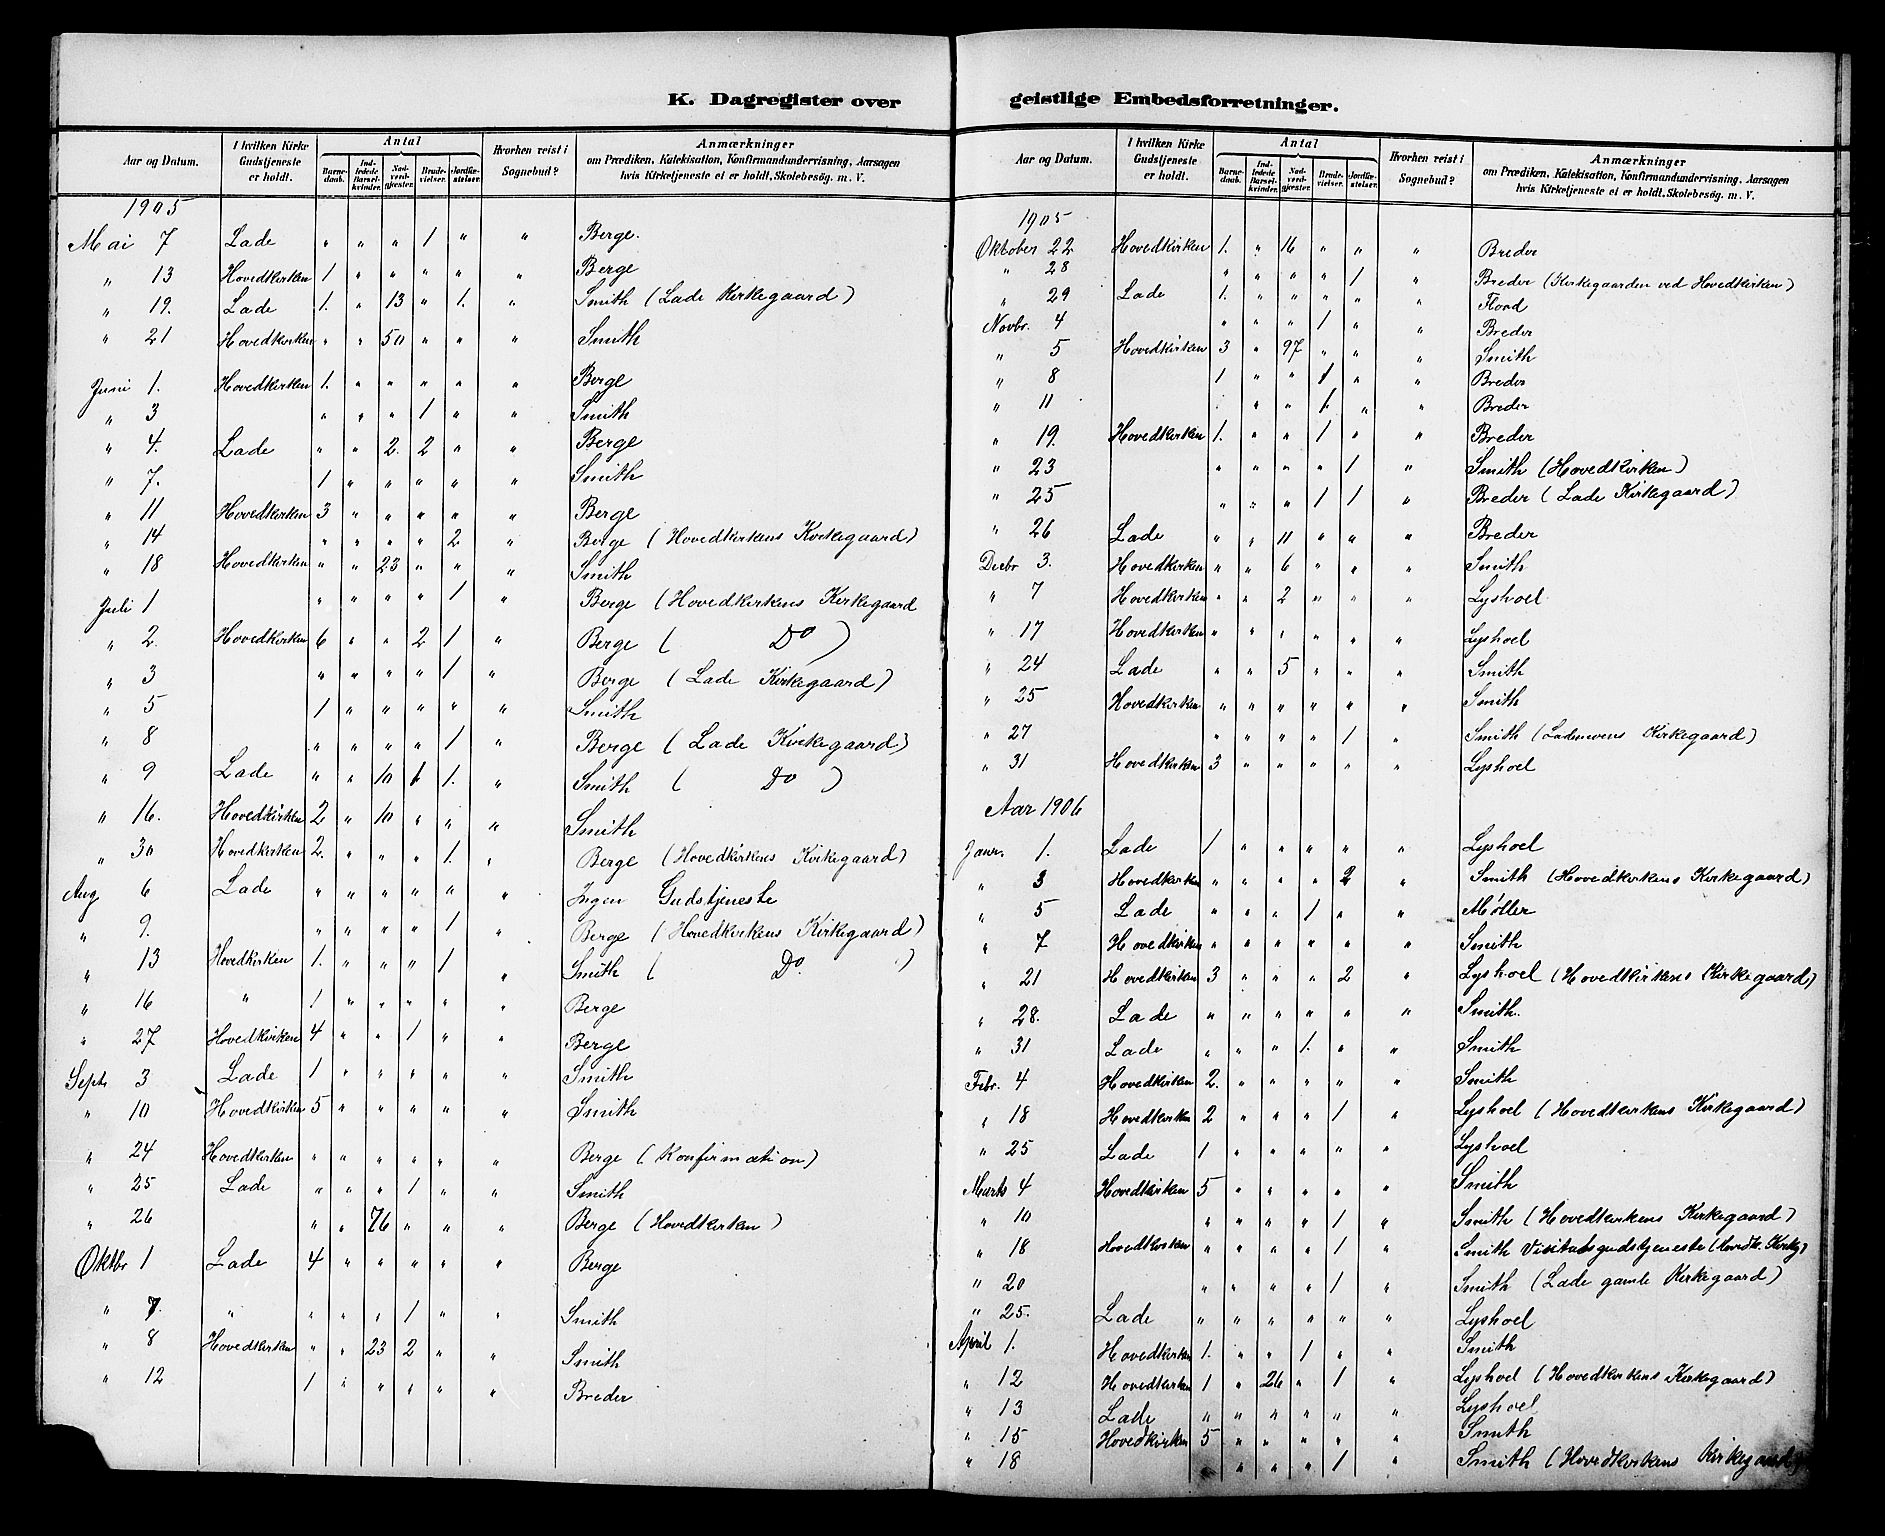 K. Dagregister over geistlige Embedsforretninger.
Aar og Datum. | I hvilken Kirke Gudstjeneste er holdt. | Antal | Barnedaab. | Indledede Barselkvinder. | Nadverdgjester. | Brudevielser. | Jordfæstelser. | Hvorhen reist i Sognebud? | Anmærkninger om Prædiken, Katekisation, Konfirmandundervisning, Aarsagen hvis Kirketjeneste ei er holdt, Skolebesøg. m. V.
1905
Mai 7 Lade " " " 1 " " Berge.
" 13 Hovedkirken 1 " " " " " Berge
" 19. Lade 1. " 13 " 1. " Smith (Lade Kirkegaard)
" 21 Hovedkirken " " 50 " " " Smith
Juni 1. Hovedkirken 1. " " " " " Berge
" 3 " " " 1 " " Smith
" 4. Lade " " 2. 2 " " Berge
" 7. 1 " " " " " Smith
" 11 Hovedkirken 3 " " " " " Berge
" 14 " " " " 2 " Berge (Hovedkirkens Kirkegaard)
" 18 Hovedkirken " " 23 " " " Smith
Juli 1 " " " " 1 " Berge (Hovedkirkens Kirkegaard
" 2. Hovedkirken 6 " " 2 1 " Berge ( Do )
" 3 " " " " 1 " Berge (Lade Kirkegaard)
" 5 1 " " " " " Smith
" 8 " " " " 1 " Berge (Lade Kirkegaard)
" 9 Lade " " 10 1 1. " Smith ( Do )
" 16. Hovedkirken 2 " 10 " " " Smith
" 30 Hovedkirken 2. " " " 1. " Berge (Hovedkirkens Kirkegaard)
Aug 6 Lade " " " " " " Ingen Gudstjeneste
" 9. " " " " 1 " Berge (Hovedkirkens Kirkegaard)
" 13 Hovedkirken 1. " " " 1 " Smith ( Do. )
" 16 " 1 " " " " " Berge
" 27 Hovedkirken 4 " " 1 " " Berge
Septr 3 Lade 1 " " " " " Smith
" 10 Hovedkirken 5 " " " " " Smith
" 24 Hovedkirken " " " " " " Berge (Konfirmation)
" 25 Lade " " " 1 " " Smith
" 26 " " 76 " " " Berge (Hovedkirken)
Oktbr 1 Lade 4 " " " " " Berge
" 7. " " " " 1 " " Smith
" 8 Hovedkirken " " 23 2 " " Smith
" 12 1 " " " " " Breder
1905
Oktober 22 Hovedkirken 1. " 16 " " " Breder
" 28 " " " " 1 " Breder (Kirkegaarden ved Hovedkirken)
" 29 Lade 1. " " " " " Flood
Novbr. 4 " " " 1 " " Breder
" 5 Hovedkirken 3 " 97 " " " Smith
" 8 1 " " 1 " " Breder
" 11 " " " 1. " " Breder
" 19. Hovedkirken 1. " " 1 " " Breder
" 23 " " " " 1 " Smith (Hovedkirken)
" 25 " " " 1 1 " Breder (Lade Kirkegaard)
" 26 Lade " " 11 " " " Breder
Decbr 3. Hovedkirken " " 6 " " " Smith
" 7 Hovedkirken " " 2 " " " Lyshoel
" 17 Hovedkirken " " " " " " Lyshoel
" 24 Lade " " 5 " " " Smith
" 25 Hovedkirken " " " " " " Smith
" 27 " " " " 1 " Smith (Lademoens Kirkegaard)
" 31 Hovedkirken 3 " " " " " Lyshoel
Aar 1906
Januar 1. Lade 1 " " " " " Lyshoel
" 3 Hovedkirken " " " " 2 " Smith (Hovedkirkens Kirkegaard)
" 5 Lade " " " 1 " " Møller
" 7 Hovedkirken " " " " " " Smith
" 21 Hovedkirken 3 " " " 2 " Lyshoel (Hovedkirkens Kirkegaard)
" 28. Lade " " " " " " Smith.
" 31 Lade " " " 1. " " Smith
Febr. 4 Hovedkirken 2. " " " " " Smith
" 18 Hovedkirken 2 " " " 1 " Lyshoel (Hovedkirkens Kirkegaard)
" 25 Lade 1 " " " " " Lyshoel
Marts 4 Hovedkirken 5 " " " " " Smith
" 10 " " " " 1 " Smith (Hovedkirkens Kirkegaard)
" 18 Hovedkirken " " " " 1 " Smith Visitatsgudstjeneste (Hovedk. Kirkg)
" 20 " " " " 1 " Smith (Lade gamle Kirkegaard)
" 25. Lade " " " " " " Lyshoel
April 1. Hovedkirken 1. " " 1 " " Smith
" 12 Hovedkirken 1 " 26 " 1 " Lyshoel (Hovedkirkens Kirkegaard)
" 13 Lade " " " " " " Lyshoel
" 15 Hovedkirken 5 " " " " " Smith
" 18 " " " 1 " Smith (Hovedkirkens Kirkegaard)